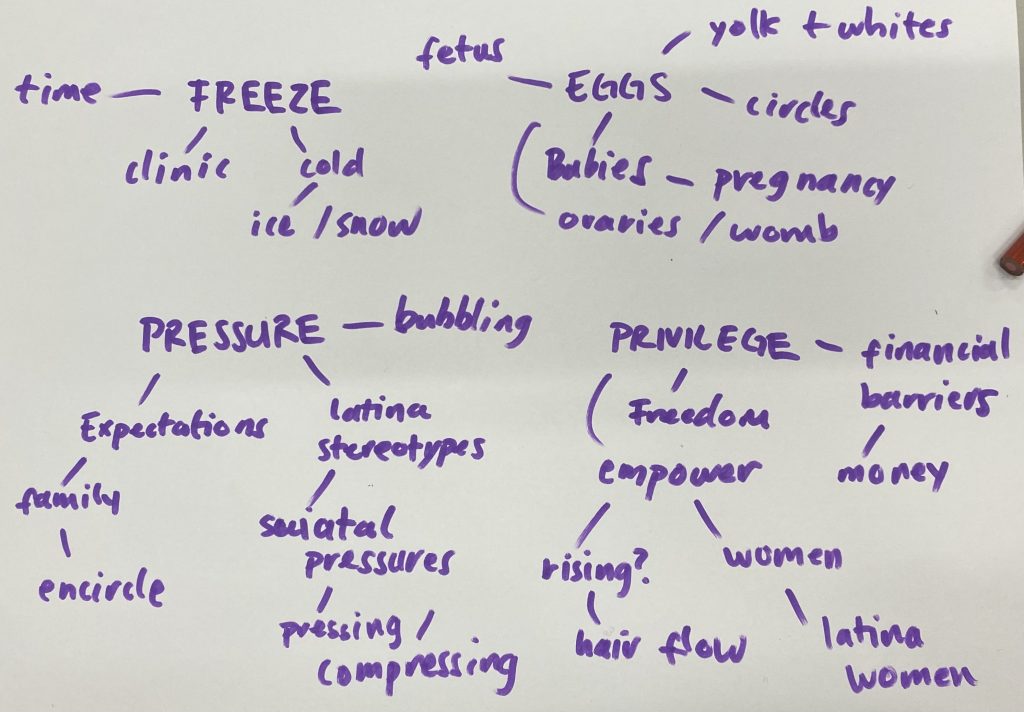 time — FREEZE
clinic
cold
ice / snow
fetus — EGGS
yolk + whites
circles
Babies — pregnancy
ovaries / womb
PRESSURE — bubbling
Expectations
family
encircle
latina
stereotypes
sociatal
pressures
pressing /
compressing
PRIVILEGE — financial
barriers
money
Freedom
empower
rising?
hair flow
women
latina
women